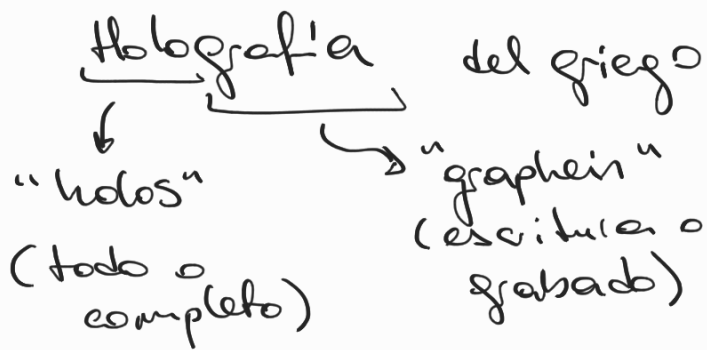 Holografía del griego
"holos"
(todo o
completo)
"graphein"
(escritura o
grabado)